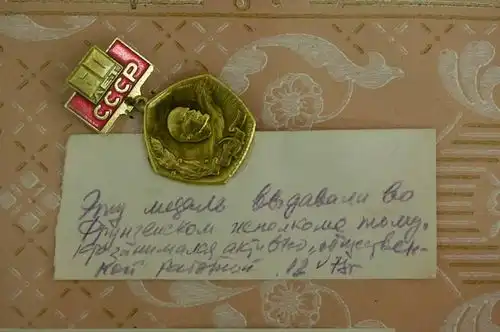 СССР
Эту медаль выдавали во
Фрунзенском исполкоме тому,
кто занимался активно обществен-
ной работой. 12 73г